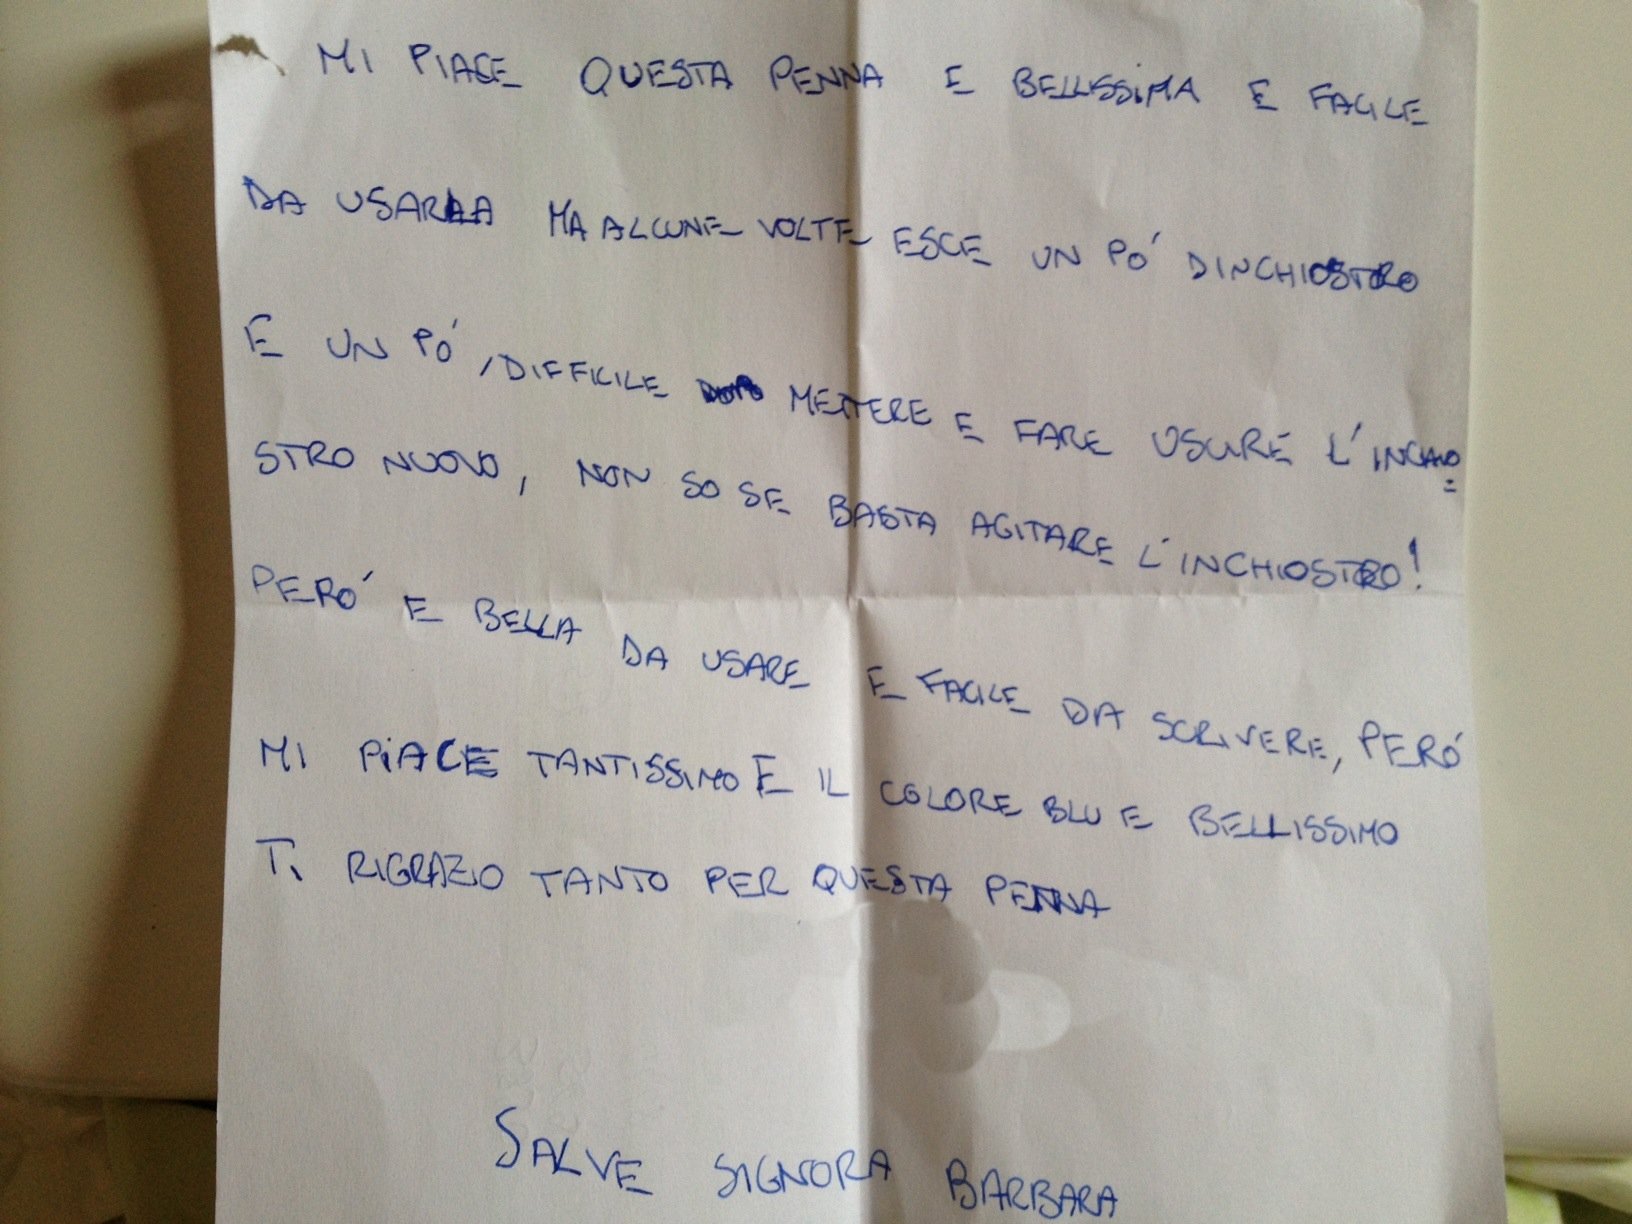 MI PIACE QUESTA PENNA E BELLISSIMA E FACILE
DA USARLA MA ALCUNE VOLTE ESCE UN PO' DINCHIOSTRO
E UN PO', DIFFICILE METTERE E FARE USCIRE L'INCHIO
STRO NUOVO, NON SO SE BASTA AGITARE L'INCHIOSTRO!
PERO' E BELLA DA USARE E FACILE DA SCRIVERE, PERO'
MI PIACE TANTISSIMO E IL COLORE BLU E BELLISSIMO
TI RIGRAZIO TANTO PER QUESTA PENNA
SALVE SIGNORA BARBARA